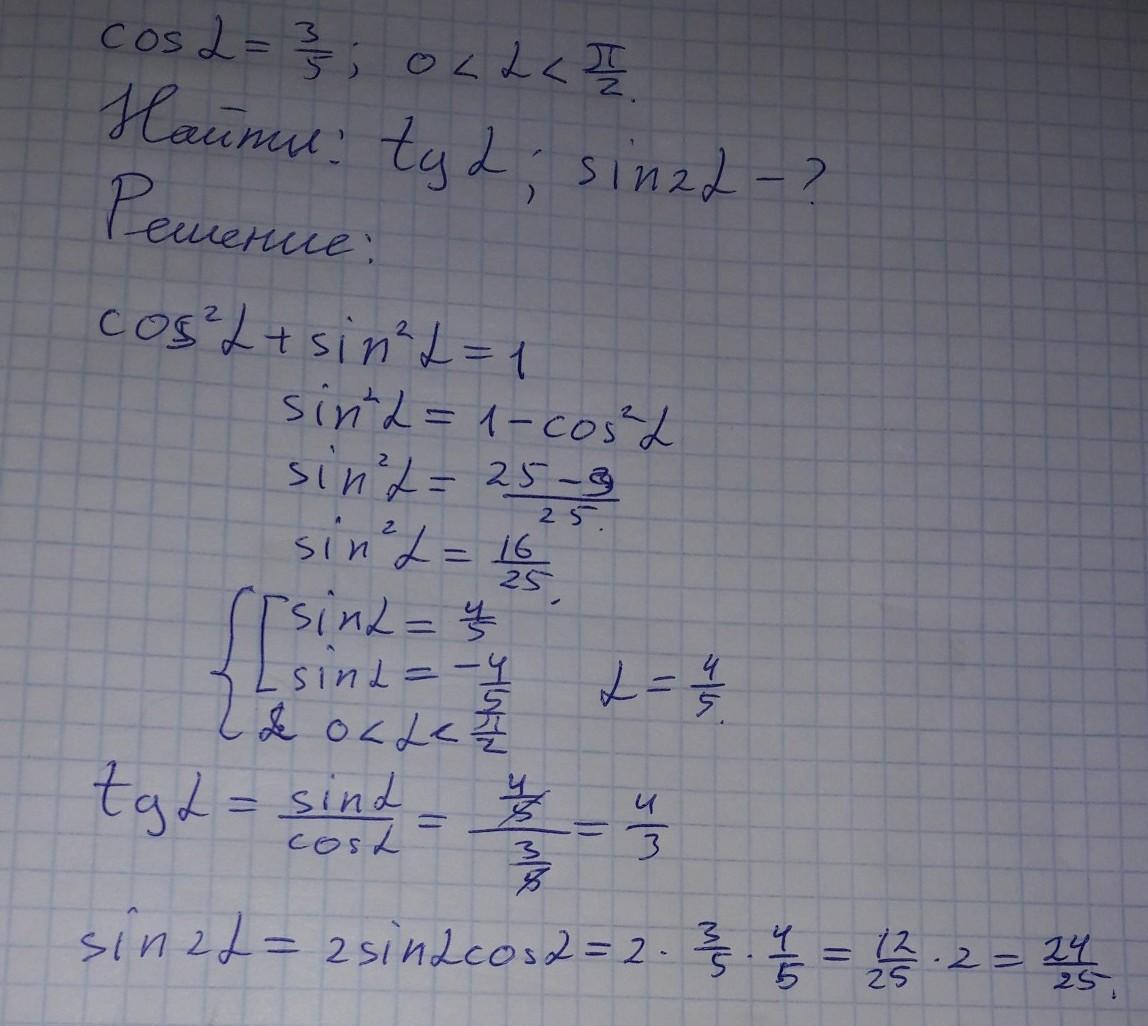 cos α = 3/5; 0 < α < π/2.
Найти: tg α; sin2α - ?
Решение:
cos²α + sin²α = 1
sin²α = 1 - cos²α
sin²α = (25 - 9)/25.
sin²α = 16/25.
{ [ sin α = 4/5
sin α = -4/5 α = 4/5.
0 < α < π/2
tg α = sin α/cos α = (4/5)/(3/5) = 4/3
sin 2α = 2 sin α cos α = 2 · 3/5 · 4/5 = 12/25 · 2 = 24/25.